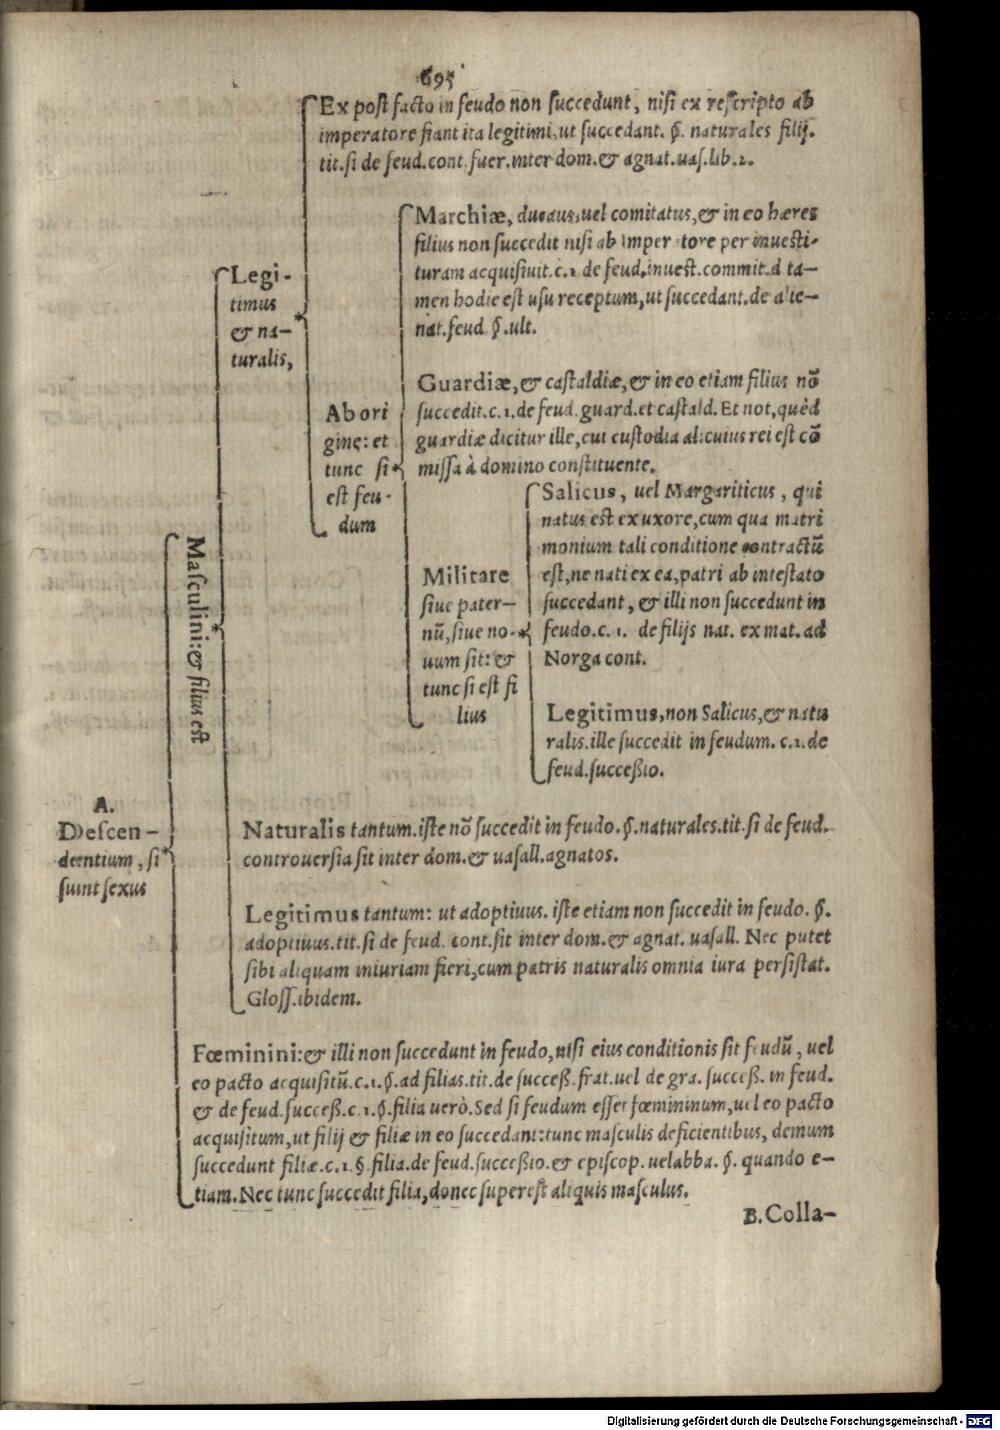 695
A.
Descen-
dentium, si
suint sexus
Masculini: & filius est
Legi-
timus
& na-
turalis,
Ex post facto in feudo non succedunt, nisi ex rescripto ab
imperatore fiant ita legitimi, ut succedant. §. naturales filij.
tit. si de feud. cont. fuer. inter dom. & agnat. uas. lib. 2.
Abori
gine: et
tunc si
est feu-
dum
Marchiæ, ducatus, uel comitatus, & in eo hæres
filius non succedit nisi ab Imperatore per inuesti-
turam acquisiuit. c. 1. de feud. inuest. commit. ta-
men hodie est usu receptum, ut succedant. de alie-
nat. feud. §. ult.
Guardiæ, & castaldiæ, & in eo etiam filius nō
succedit. c. 1. de feud. guard. et castald. Et not, quèd
guardiæ dicitur ille, cui custodia alicuius rei est cō
missa à domino constituente.
Militare
siue pater-
nū, siue no-
uum sit: &
tunc si est fi
lius
Salicus, uel Margariticus, qui
natus est ex uxore, cum qua matri
monium tali conditione contractū
est, ne nati ex ea, patri ab intestato
succedant, & illi non succedunt in
feudo. c. 1. de filijs nat. ex mat. ad
Norga cont.
Legitimus, non Salicus, & natu
ralis. ille succedit in feudum. c. 1. de
feud. successio.
Naturalis tantum. iste nō succedit in feudo. §. naturales. tit. si de feud.
controuersia sit inter dom. & uasall. agnatos.
Legitimus tantum: ut adoptiuus. iste etiam non succedit in feudo. §.
adoptiuus. tit. si de feud. cont. sit inter dom. & agnat. uasall. Nec putet
sibi aliquam iniuriam fieri, cum patris naturalis omnia iura persistat.
Gloss. ibidem.
Fœminini: & illi non succedunt in feudo, nisi eius conditionis sit feudū, uel
eo pacto acquisitū. c. 1. §. ad filias. tit. de success. frat. uel de gra. success. in feud.
& de feud. success. c. 1. §. filia uerò. Sed si feudum esset fœmininum, uel eo pacto
acquisitum, ut filij & filiæ in eo succedant: tunc masculis deficientibus, demum
succedunt filiæ. c. 1. §. filia. de feud. successio. & episcop. uel abba. §. quando e-
tiam. Nec tunc succedit filia, donec superest aliquis masculus.
B. Colla-
Digitalisierung gefördert durch die Deutsche Forschungsgemeinschaft - DFG